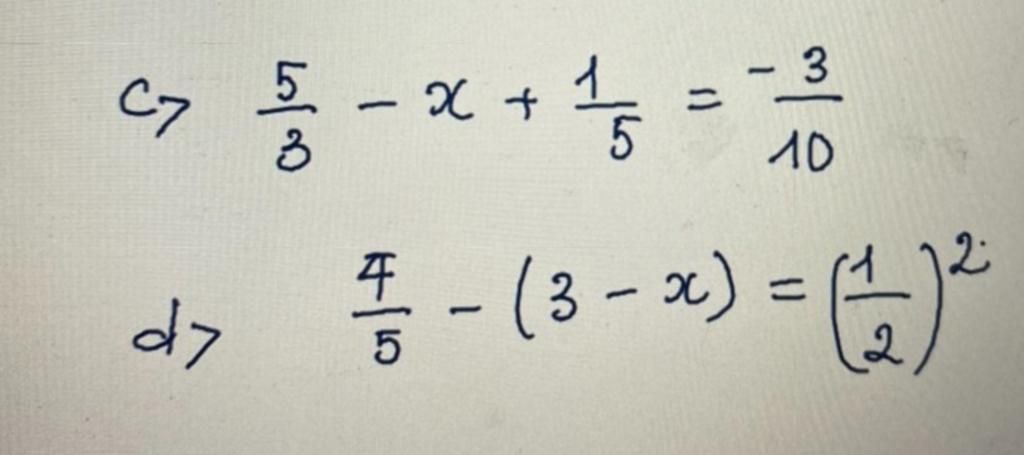 c> 5/3 - x + 1/5 = -3/10
d> 4/5 - (3 - x) = (1/2)²